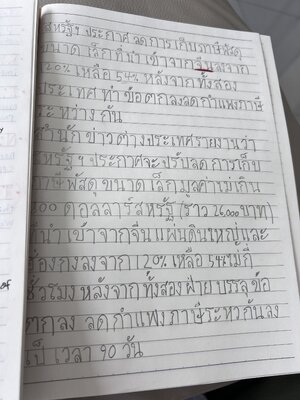 สหรัฐฯ ประกาศ ลด การเก็บ ภาษี พัสดุ
ขนาด เล็ก ที่นำ เข้า จาก จีน ลง จาก
120% เหลือ 54% หลังจาก ทั้ง สอง
ประเทศ ทำ ข้อ ตกลง ลด กำแพง ภาษี
ระ หว่าง กัน
สำนัก ข่าว ต่าง ประเทศ รายงาน ว่า
สหรัฐ ฯ ประกาศ จะ ปรับ ลด การ เก็บ
ภาษี พัสดุ ขนาด เล็ก มูลค่า ไม่ เกิน
800 ดอลลาร์ สหรัฐ (ราว 26,000 บาท)
ที่ นำ เข้า จาก จีน แผ่นดิน ใหญ่ และ
ฮ่องกง ลง จาก 120% เหลือ 54% ไม่ กี่
ชั่วโมง หลังจาก ทั้ง สอง ฝ่าย บรรลุ ข้อ
ตกลง ลด กำแพง ภาษี ระหว กัน ลง
เป็ เวลา 90 วัน